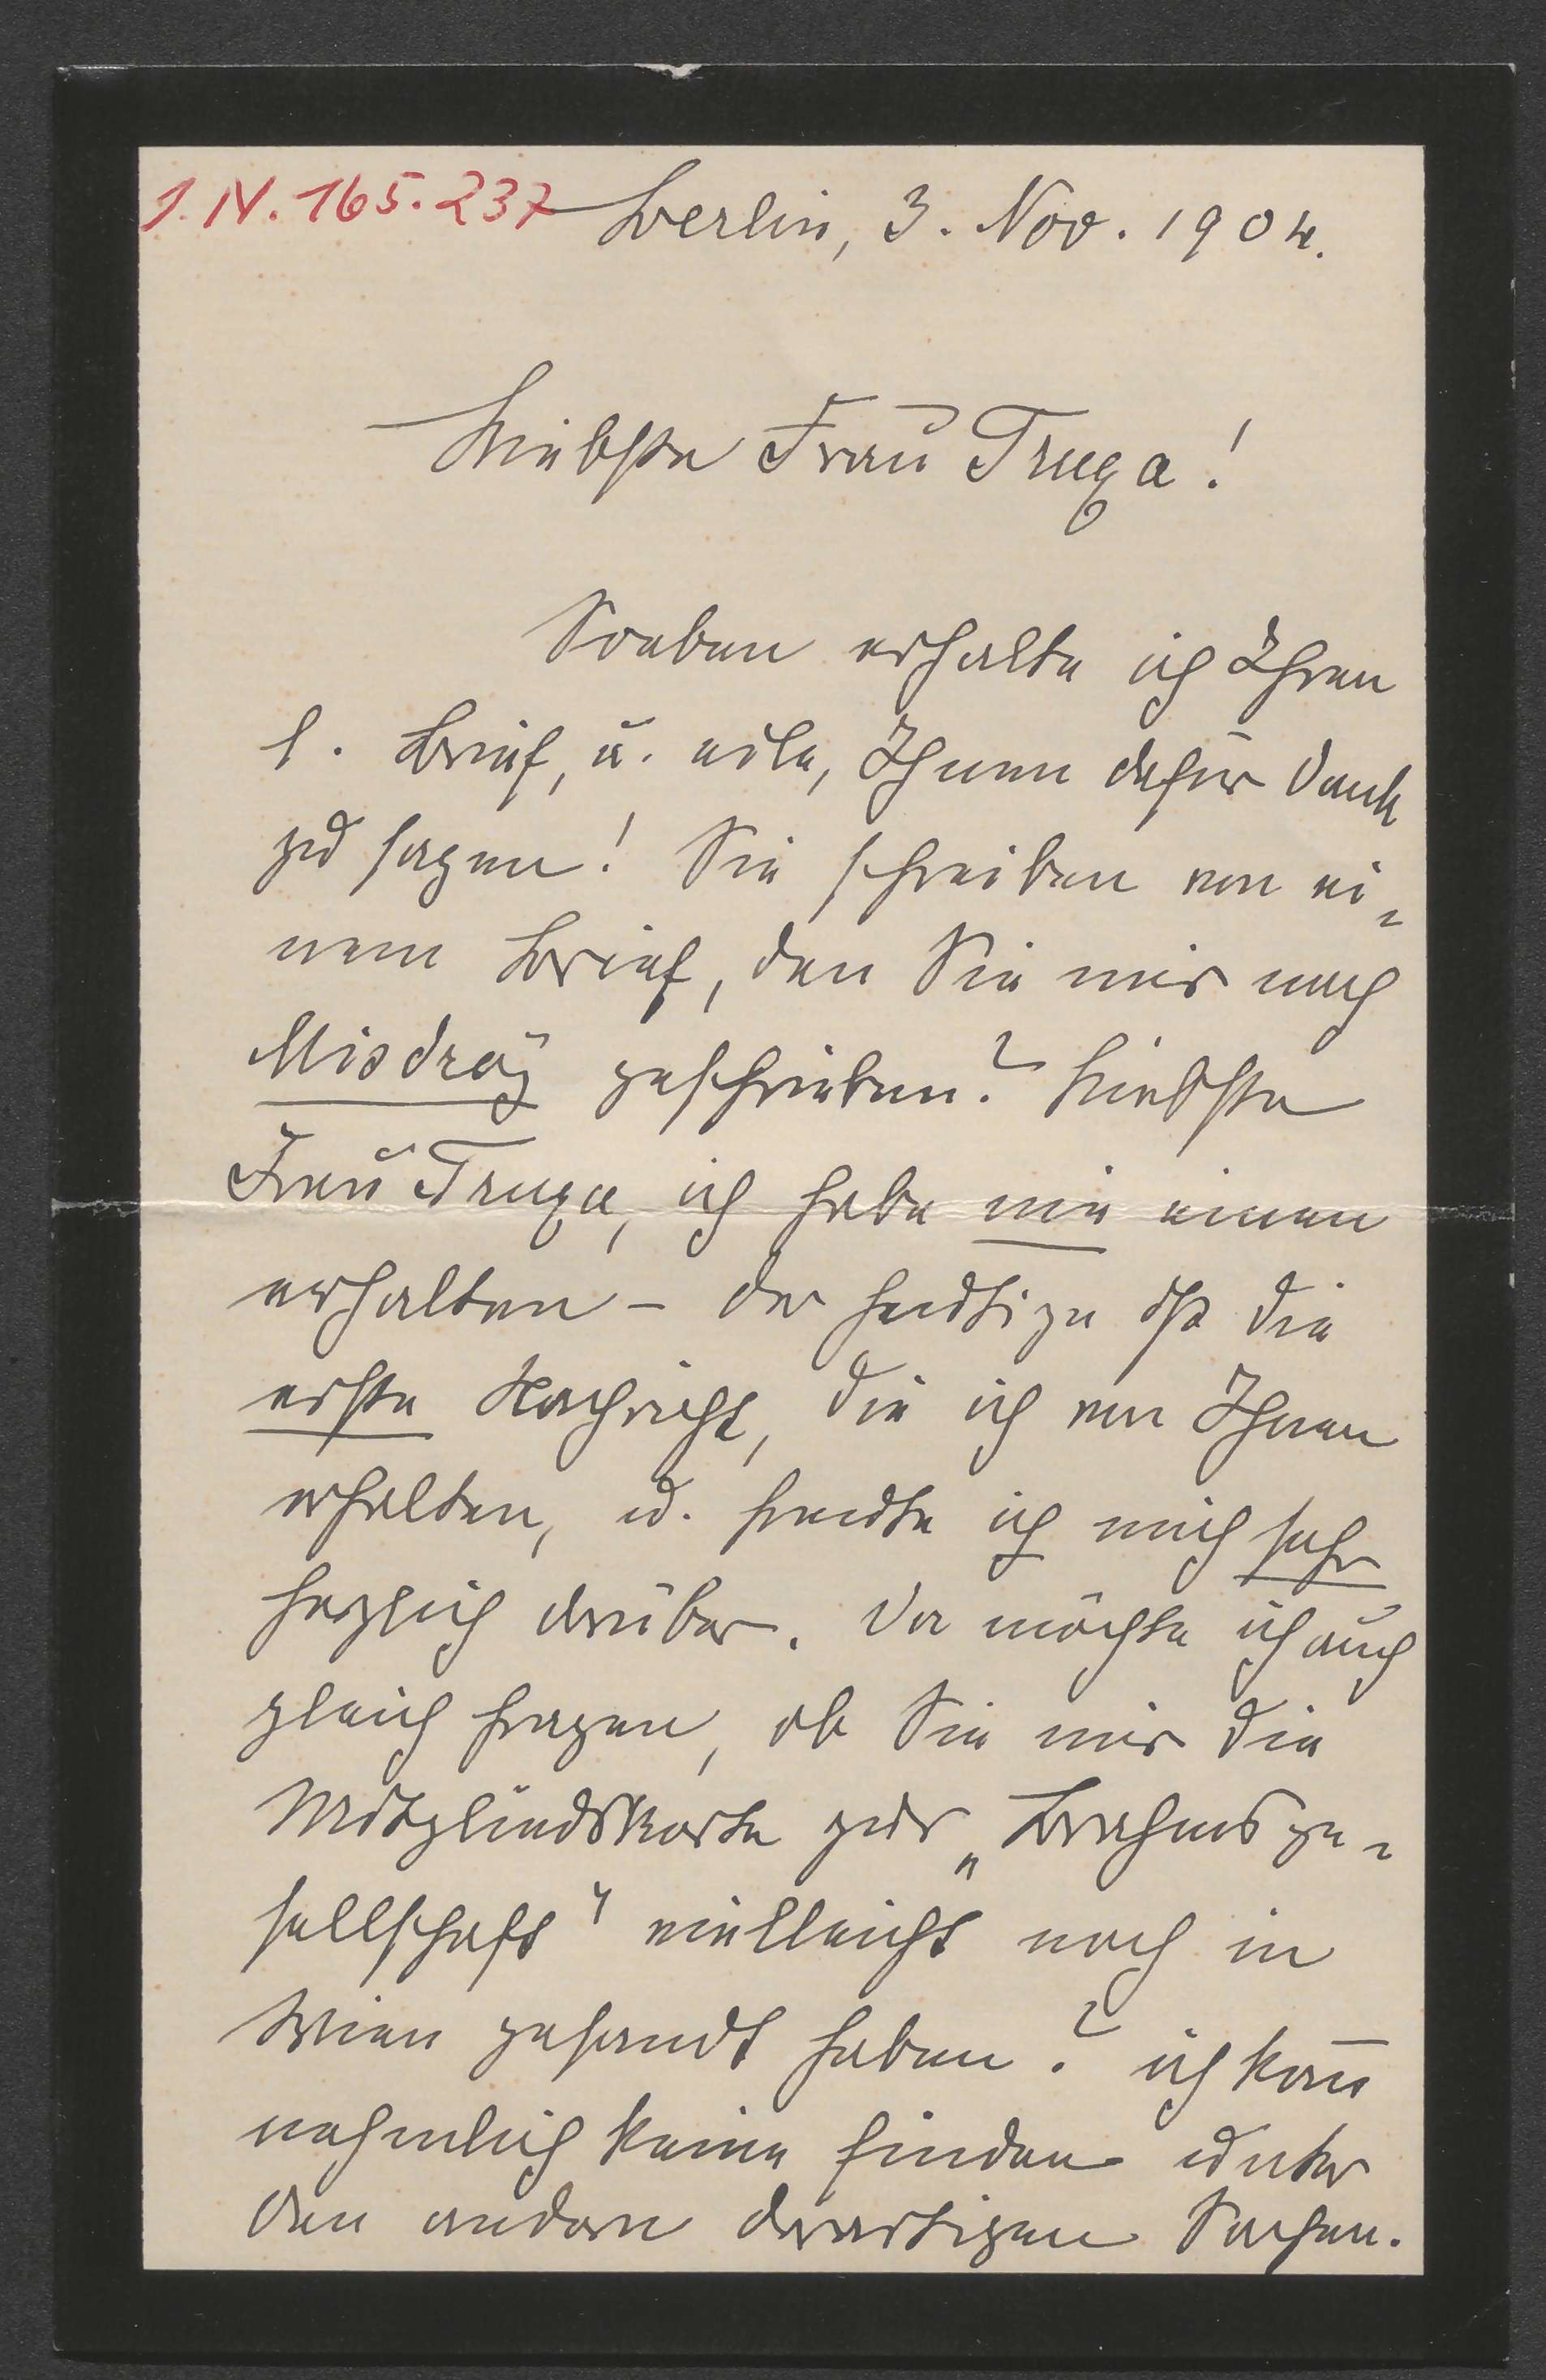 I. N. 165.237
Berlin, 3. Nov. 1904.
Liebste Frau Truxa!
Soeben erhalte ich Ihren
l. Brief, u. eile, Ihnen dafür Dank
zu sagen! Sie schreiben von ei-
nem Brief, den Sie mir nach
Misdroÿ geschrieben? Liebste
Frau Truxa, ich habe nie einen
erhalten – der heutige ist die
erste Nachricht, die ich von Ihnen
erhalten, u. freute ich mich sehr
herzlich darüber. Da möchte ich auch
gleich fragen, ob Sie mir die
Mitgliedskarte zur „Brahmsge-
sellschaft" vielleicht noch in
Wien gesandt haben? ich kan̄
nehmlich keine finden unter
den andern derartigen Sachen.